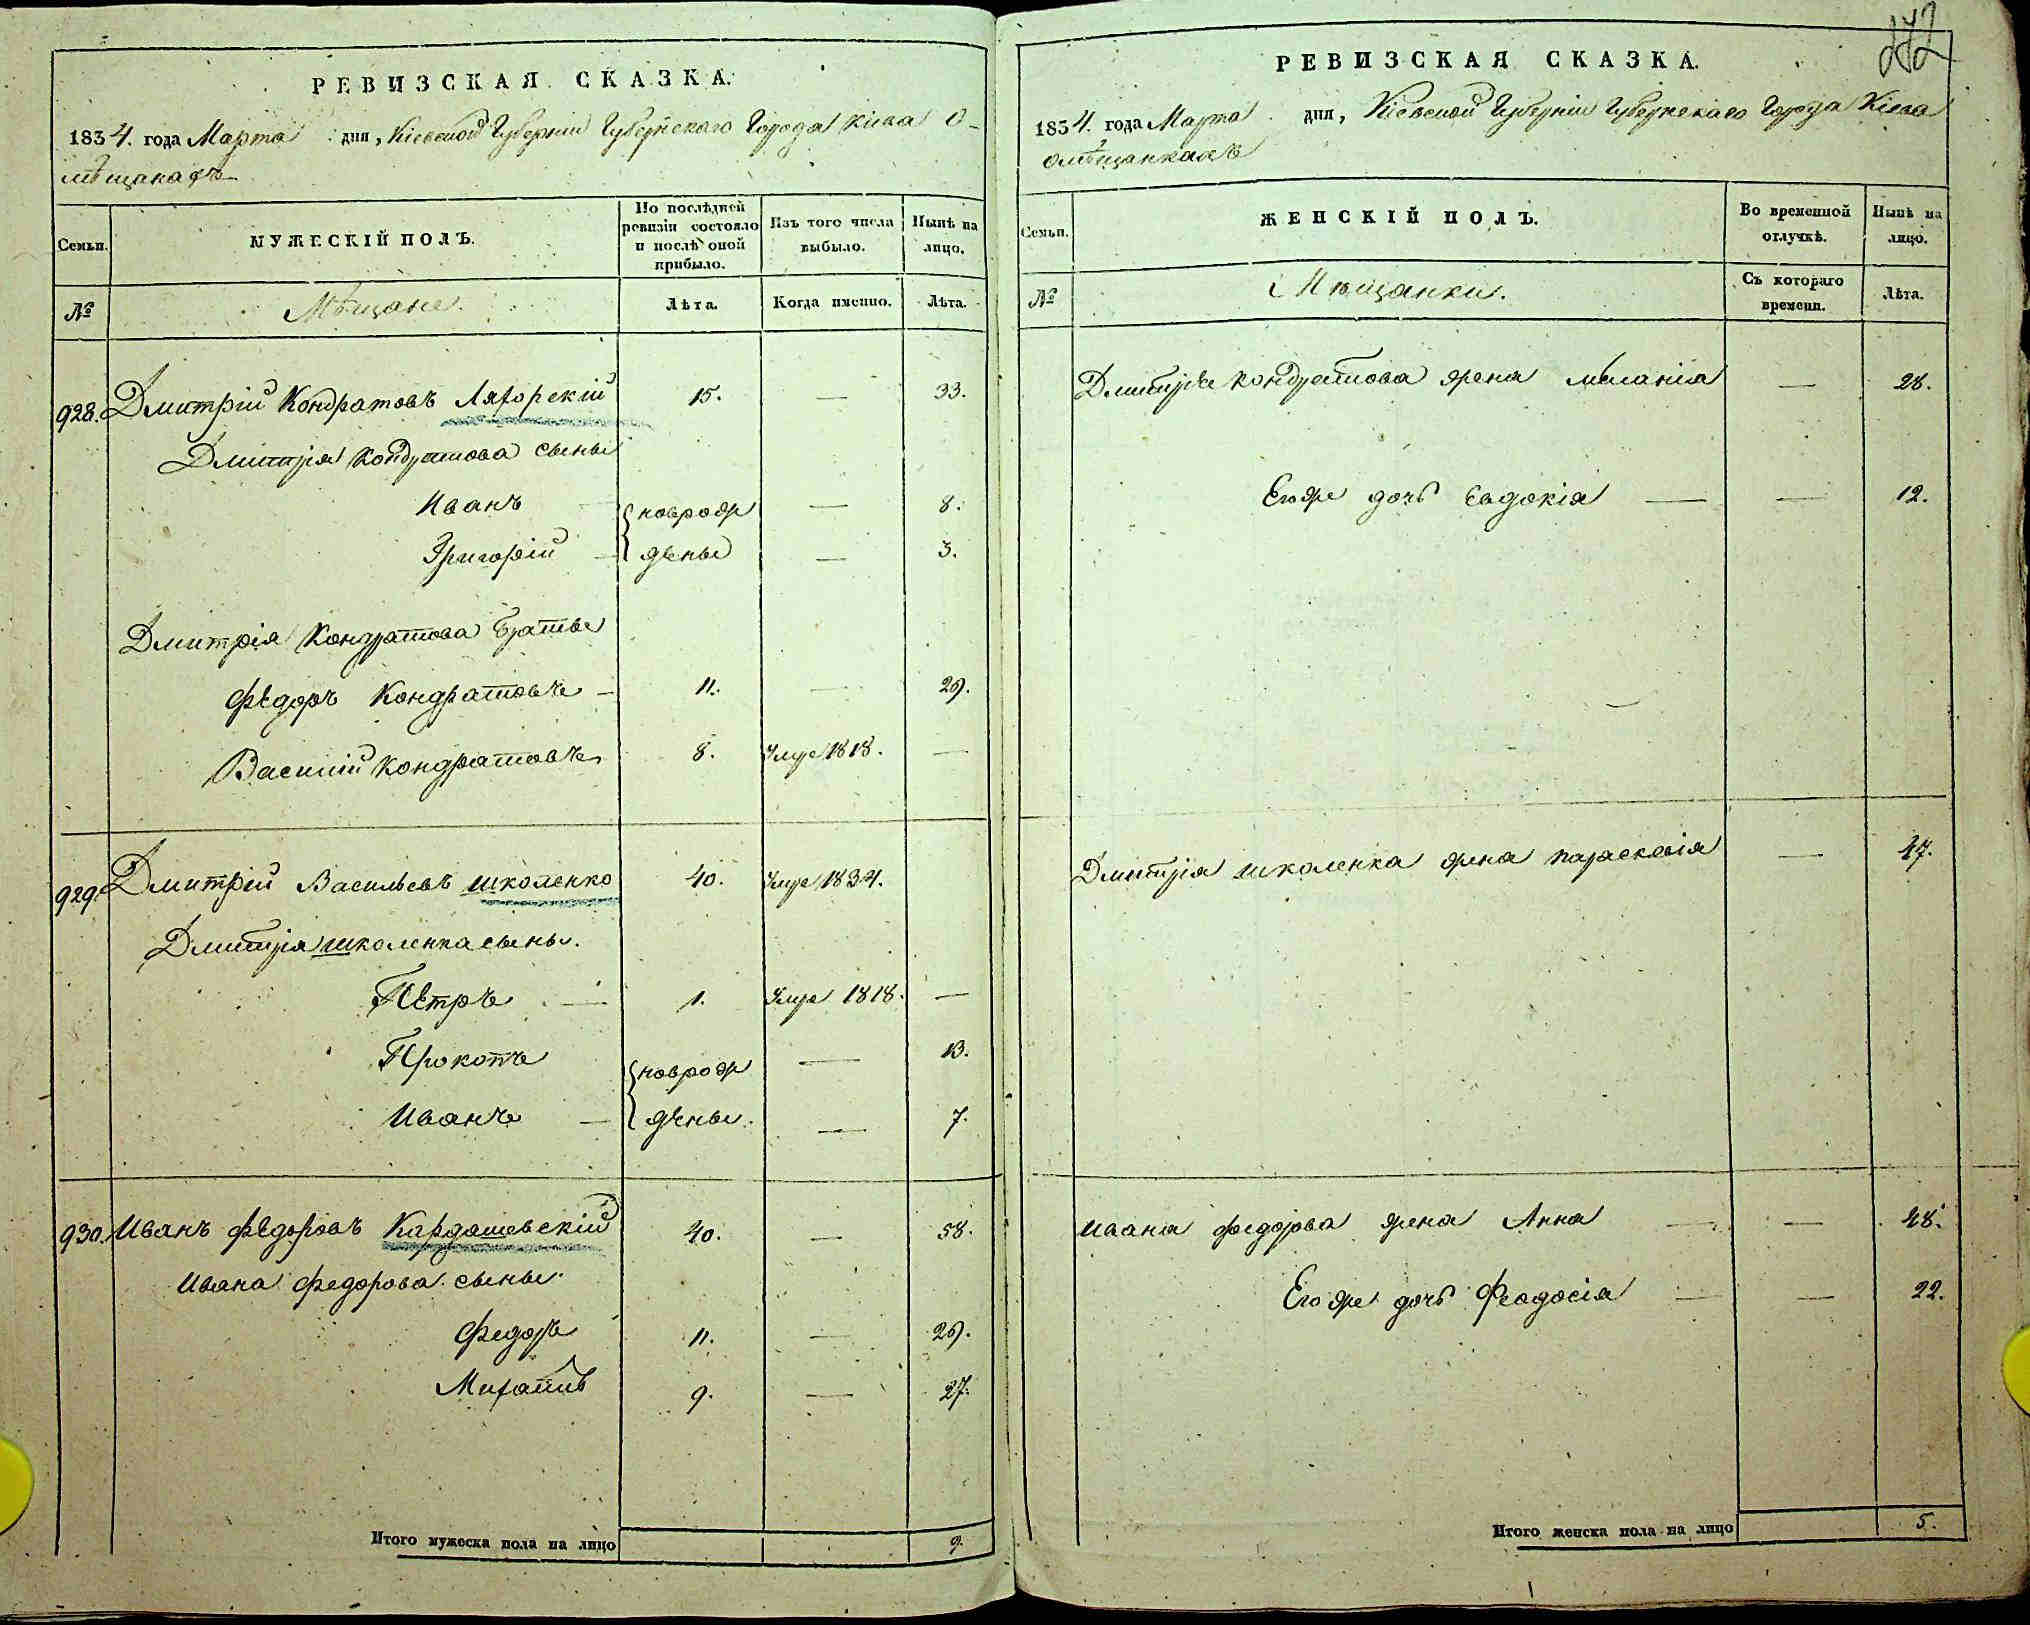 РЕВИЗСКАЯ СКАЗКА.
1834. года Марта дня, Кіевской Губерніи Губернскаго Города Кіева О-
мѣщанахъ
Семьи.
МУЖЕСКІЙ ПОЛЪ.
По послѣдней ревизіи состояло и послѣ оной прибыло.
Изъ того числа выбыло.
Нынѣ на лицо.
№
Мѣщане.
Лѣта.
Когда именно.
Лѣта.
928. Дмитрій Кондратовъ Ляхорскій 15. — 33.
Дмитрія Кондратова сыны
Иванъ новрож — 8.
Григорій — дѣны — 3.
Дмитрія Кондратова братья
Ѳедоръ Кондратовъ — 11. — 29.
Василій Кондратовъ 8. Умре 1818. —
929. Дмитрій Васильевъ Школенко 40. Умре 1834.
Дмитрія Школенка сыны.
Петръ — 1. Умре 1818. —
Прокопъ новрож — 13.
Иванъ — дѣны. — 7.
930. Иванъ Федоровъ Кардашевскій 40. — 58.
Ивана Федорова сыны.
Федоръ 11. — 29.
Михаилъ 9. — 27.
Итого мужеска пола на лицо 9.
272
РЕВИЗСКАЯ СКАЗКА.
1834. года Марта дня, Кіевской Губерніи Губернскаго Города Кіева
о мѣщанкахъ
Семьи.
ЖЕНСКІЙ ПОЛЪ.
Во временной отлучкѣ.
Нынѣ на лицо.
№
Мѣщанки.
Съ котораго времени.
Лѣта.
Дмитрія Кондратова жена Меланія — 28.
Его же дочь Евдокія — — 12.
Дмитрія Школенка жена Параскевія — 47.
Ивана Федорова жена Анна — — 48.
Его же дочь Феодосія — — 22.
Итого женска пола на лицо 5.